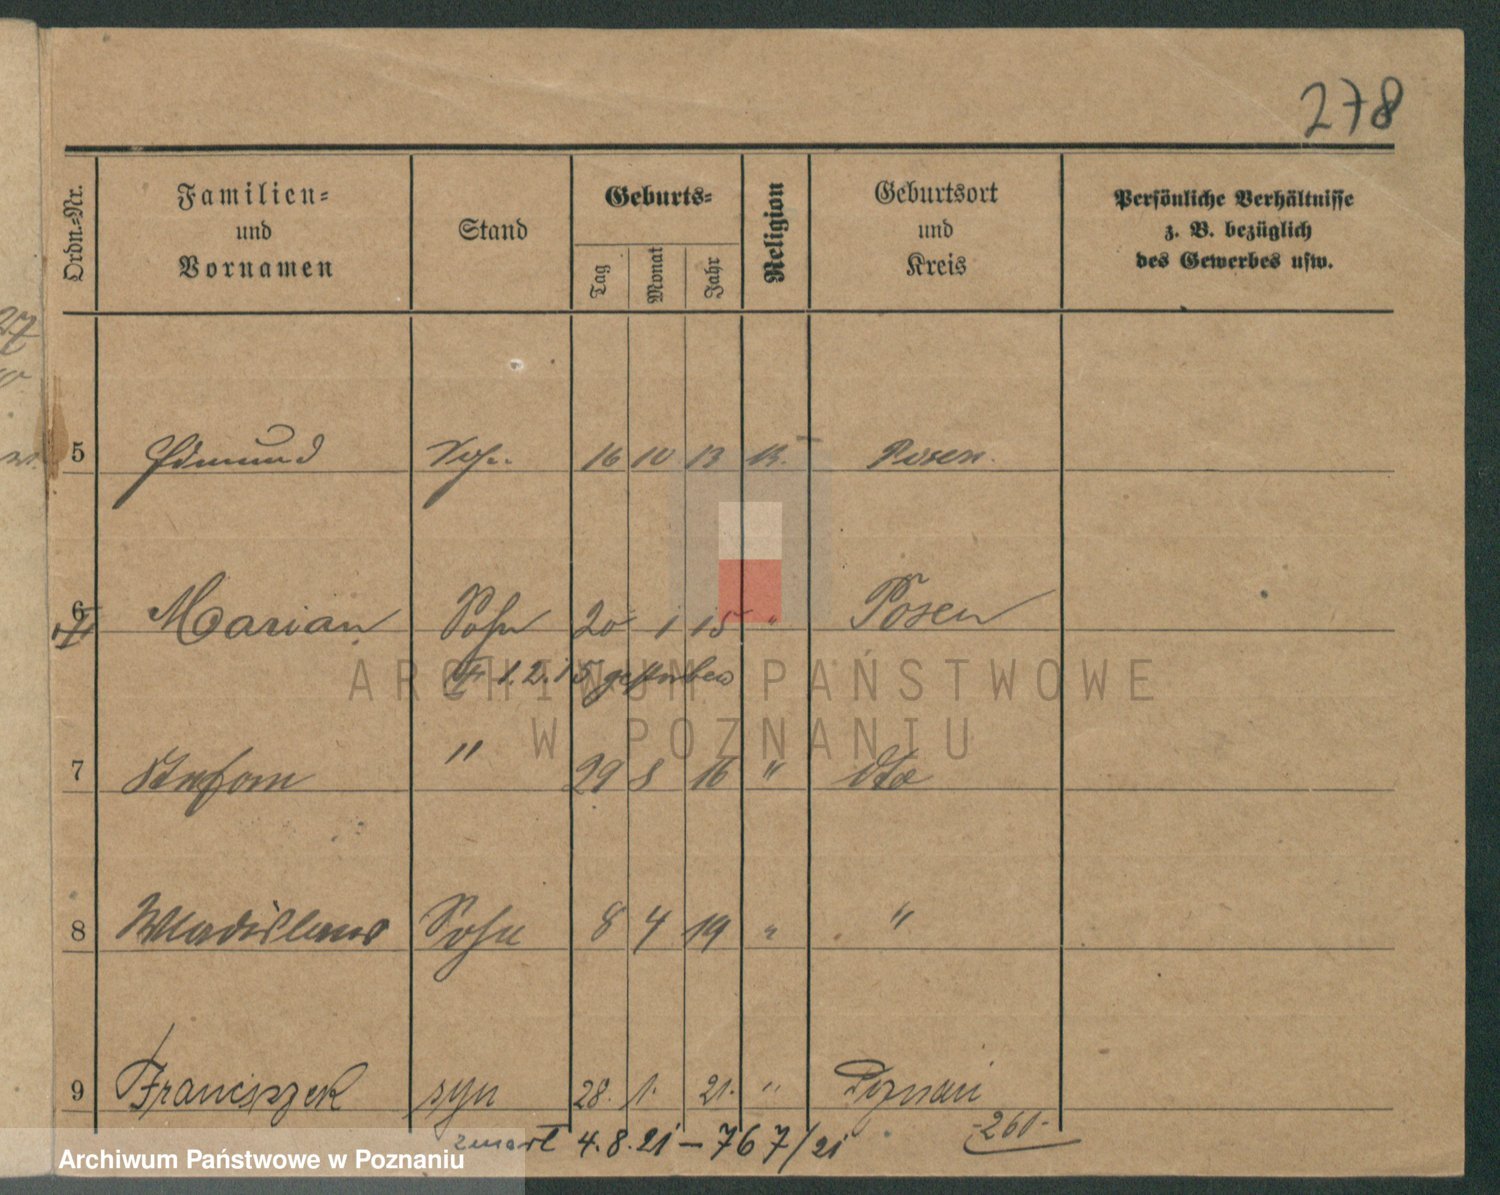 278
Ordn.-Nr.
Familien-
und
Vornamen
Stand
Geburts-
Tag
Monat
Jahr
Religion
Geburtsort
und
Kreis
Persönliche Verhältnisse
z. B. bezüglich
des Gewerbes usw.
27
5 Edmund 16 10 13 K. Posen.
6 Marian Sohn 20 1 15 " Posen
† 1.2.15 gestorben
7 Stefan " 29 8 16 " dto
8 Wladislaus Sohn 8 4 19 " "
9 Franciszek syn 28. 1. 21. " Poznań
zmarł 4.8.21 – 767/21
-260-
ARCHIWUM PAŃSTWOWE
W POZNANIU
Archiwum Państwowe w Poznaniu